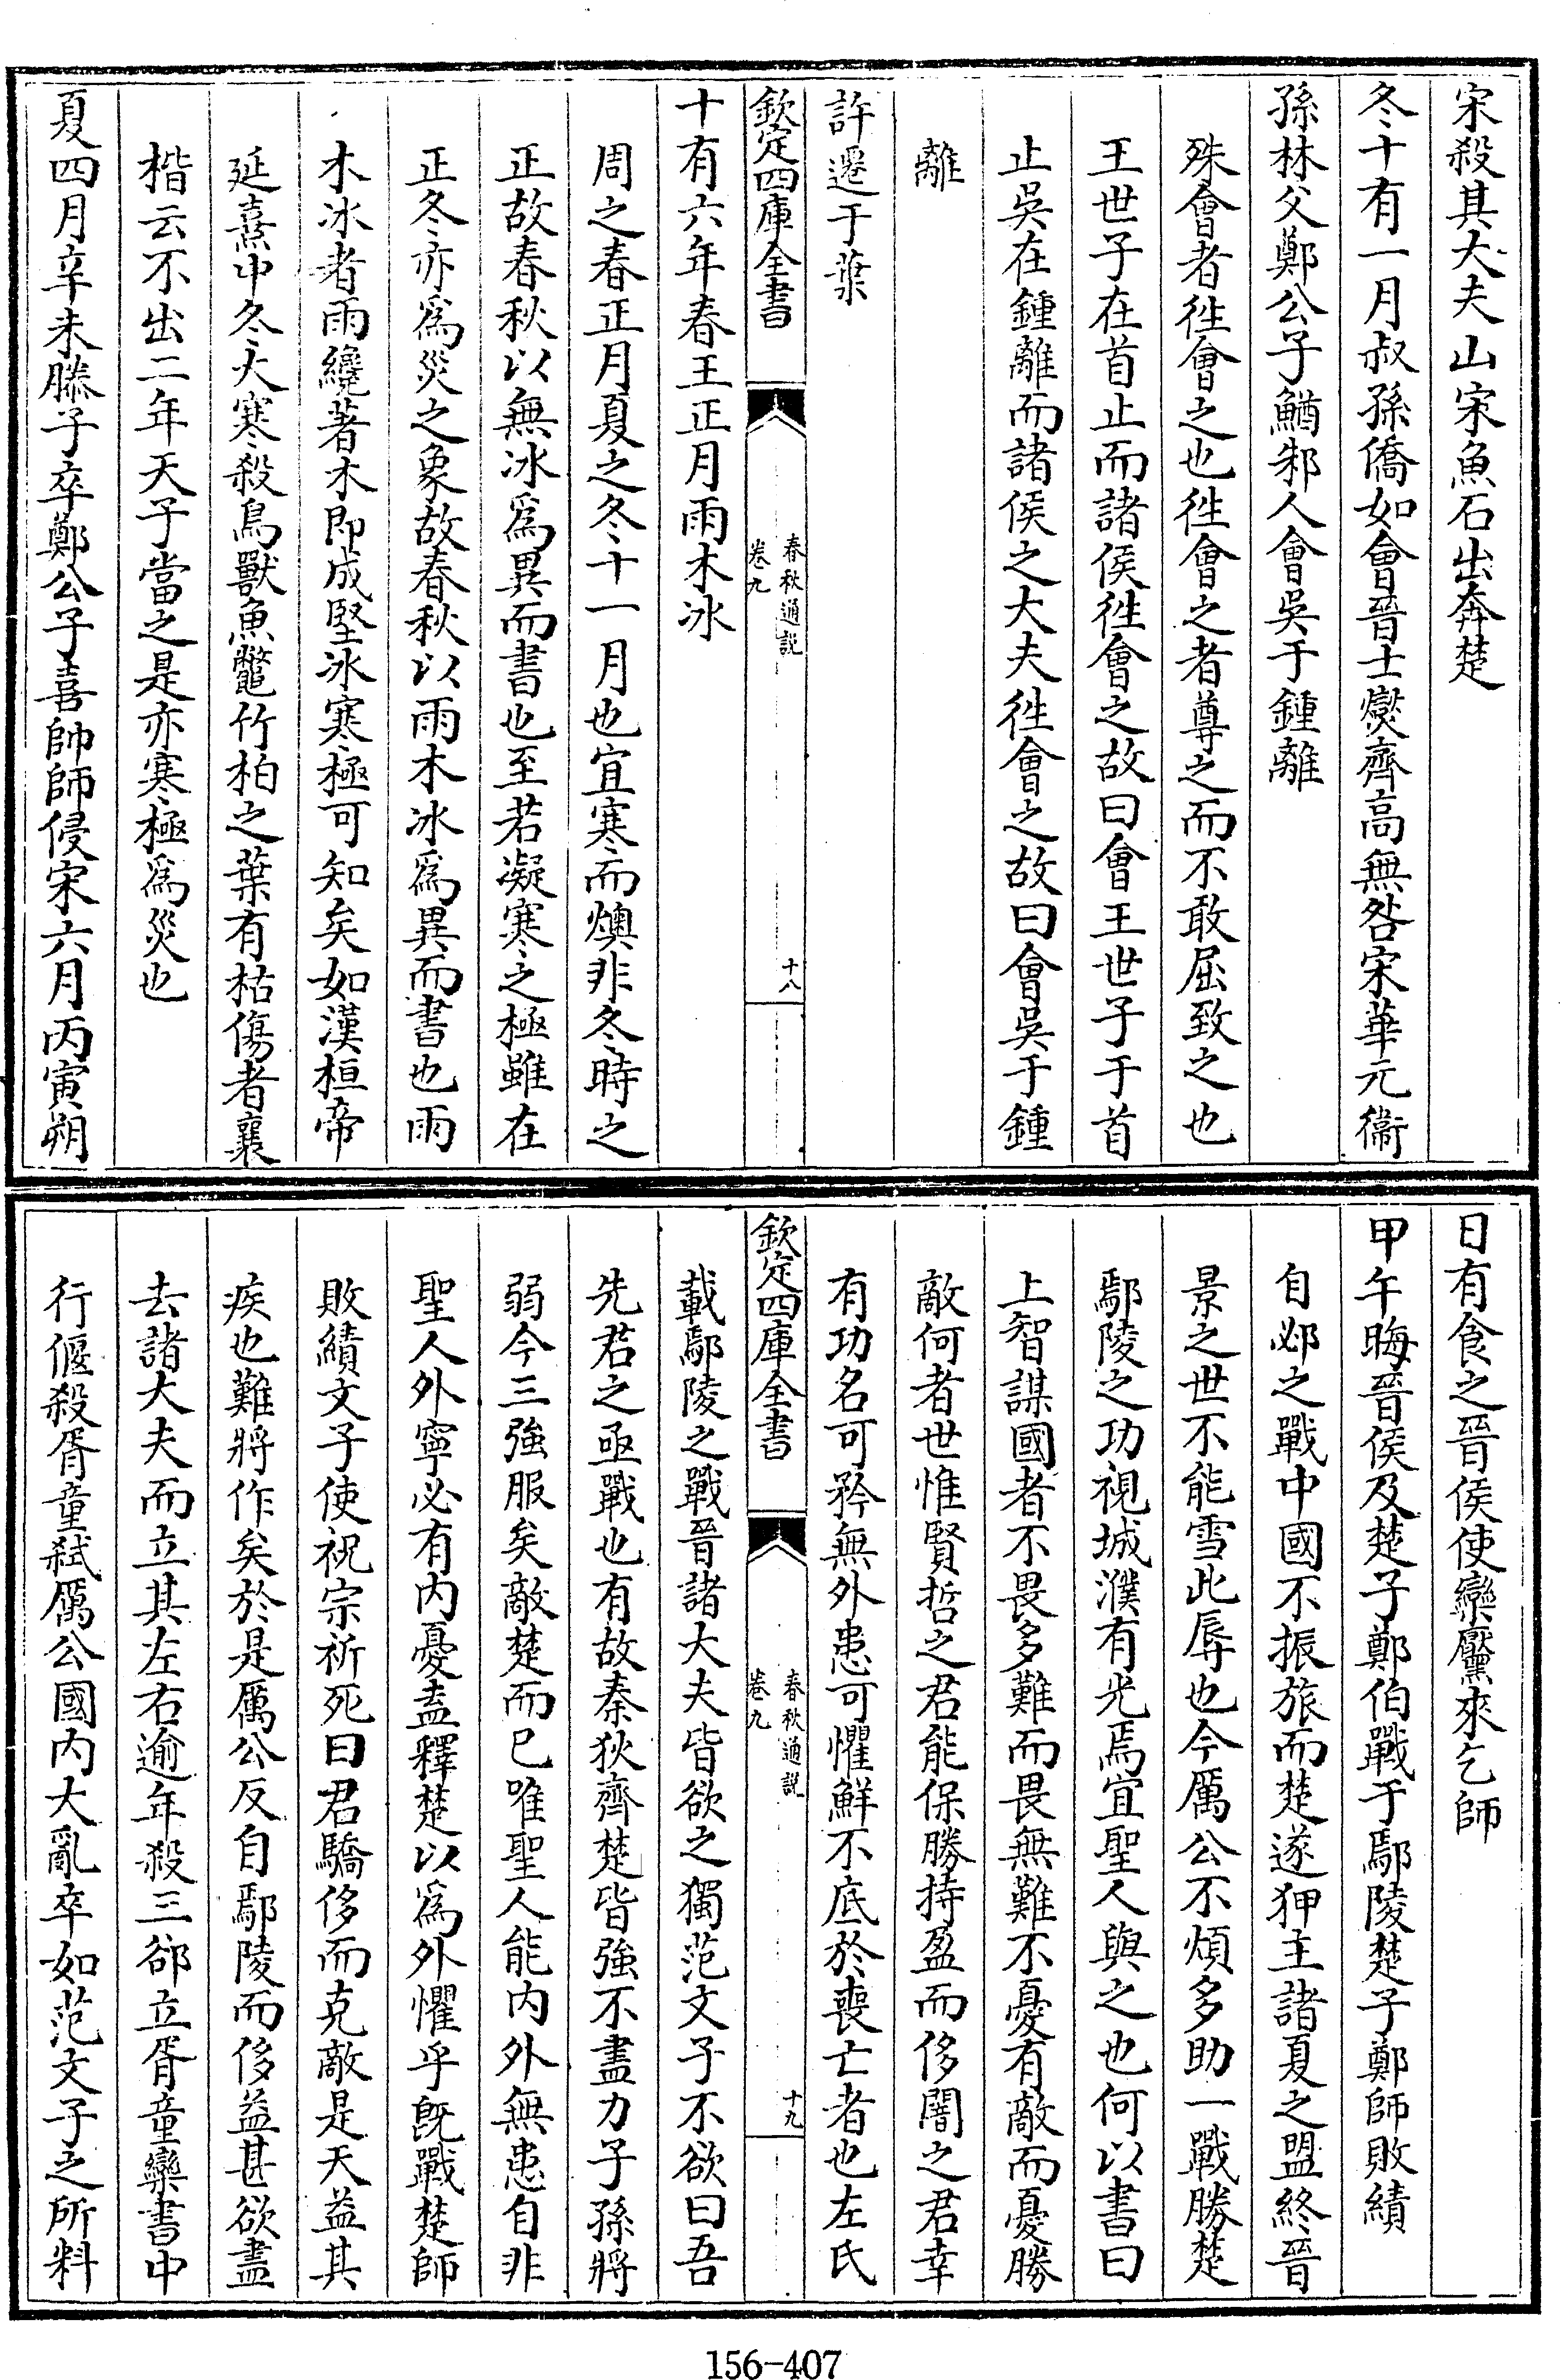 宋殺其大夫山宋魚石出奔楚
冬十有一月叔孫僑如會晉士燮齊高無咎宋華元衞
孫林父鄭公子鰌邾人會吳于鍾離
殊會者徃會之也徃會之者尊之而不敢屈致之也
王世子在首止而諸侯徃會之故曰會王世子于首
止吳在鍾離而諸侯之大夫徃會之故曰會吳于鍾
離
許遷于葉
欽定四庫全書
春秋通說
卷九
十八
十有六年春王正月雨木冰
周之春正月夏之冬十一月也宜寒而燠非冬時之
正故春秋以無冰爲異而書也至若凝寒之極雖在
正冬亦爲災之象故春秋以雨木冰爲異而書也雨
木冰者雨纔著木即成堅冰寒極可知矣如漢桓帝
延熹中冬大寒殺鳥獸魚鼈竹柏之葉有枯傷者襄
楷云不出二年天子當之是亦寒極爲災也
夏四月辛未滕子卒鄭公子喜帥師侵宋六月丙寅朔
日有食之晉侯使欒黶來乞師
甲午晦晉侯及楚子鄭伯戰于鄢陵楚子鄭師敗績
自邲之戰中國不振旅而楚遂狎主諸夏之盟終晉
景之世不能雪此辱也今厲公不煩多助一戰勝楚
鄢陵之功視城濮有光焉宜聖人與之也何以書曰
上智謀國者不畏多難而畏無難不憂有敵而憂勝
敵何者世惟賢哲之君能保勝持盈而侈闇之君幸
有功名可矜無外患可懼鮮不底於喪亡者也左氏
欽定四庫全書
春秋通說
卷九
十九
載鄢陵之戰晉諸大夫皆欲之獨范文子不欲曰吾
先君之亟戰也有故秦狄齊楚皆強不盡力子孫將
弱今三強服矣敵楚而已唯聖人能内外無患自非
聖人外寧必有内憂盍釋楚以爲外懼乎旣戰楚師
敗績文子使祝宗祈死曰君驕侈而克敵是天益其
疾也難將作矣於是厲公反自鄢陵而侈益甚欲盡
去諸大夫而立其左右逾年殺三郤立胥童欒書中
行偃殺胥童弑厲公國内大亂卒如范文子之所料
156-407